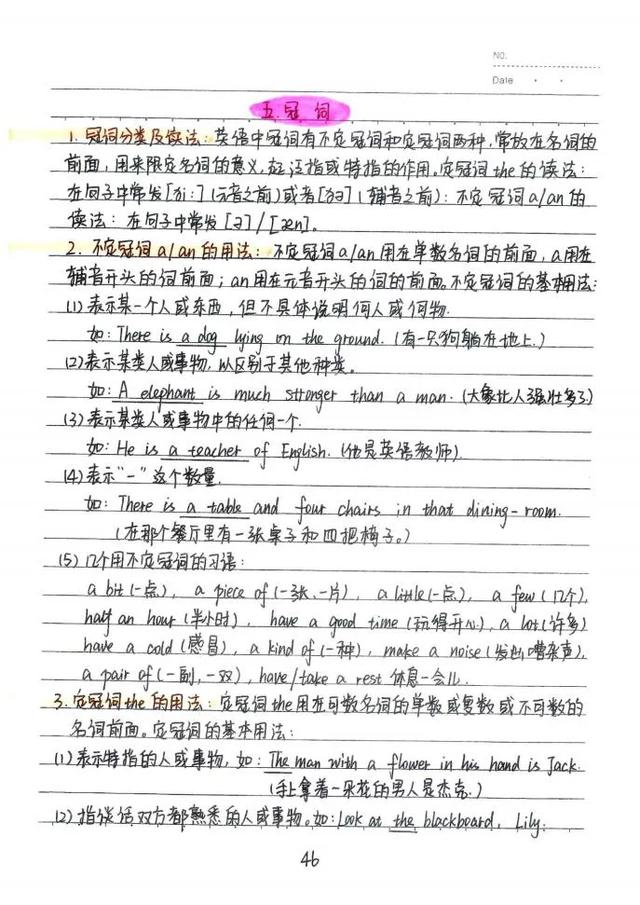 NO.
Date
五.冠 词
1. 冠词分类及读法: 英语中冠词有不定冠词和定冠词两种, 常放在名词的
前面, 用来限定名词的意义, 起泛指或特指的作用。定冠词the的读法:
在句子中常发[ði:](元音之前)或者[ðə](辅音之前); 不定冠词a/an的
读法: 在句子中常发[ə]/[æn]。
2. 不定冠词a/an的用法: 不定冠词a/an用在单数名词的前面, a用在
辅音开头的词前面; an用在元音开头的词的前面。不定冠词的基本用法:
(1) 表示某一个人或东西, 但不具体说明何人或何物.
如: There is a dog lying on the ground. (有一只狗躺在地上.)
(2) 表示某类人或事物, 以区别于其他种类。
如: A elephant is much stronger than a man. (大象比人强壮多了)
(3) 表示某类人或事物中的任何一个.
如: He is a teacher of English. (他是英语教师).
(4) 表示“一”这个数量.
如: There is a table and four chairs in that dining-room.
(在那个餐厅里有一张桌子和四把椅子。)
(5) 几个用不定冠词的习语:
a bit (一点), a piece of (一张、一片), a little (一点), a few (几个),
half an hour (半小时), have a good time (玩得开心), a lot (许多)
have a cold (感冒), a kind of (一种), make a noise (发出嘈杂声),
a pair of (一副, 一双), have/take a rest 休息一会儿.
3. 定冠词the的用法: 定冠词the用在可数名词的单数或复数或不可数的
名词前面。定冠词的基本用法:
(1) 表示特指的人或事物, 如: The man with a flower in his hand is Jack.
(手上拿着一朵花的男人是杰克.)
(2) 指谈话双方都熟悉的人或事物。如: Look at the blackboard, Lily.
46